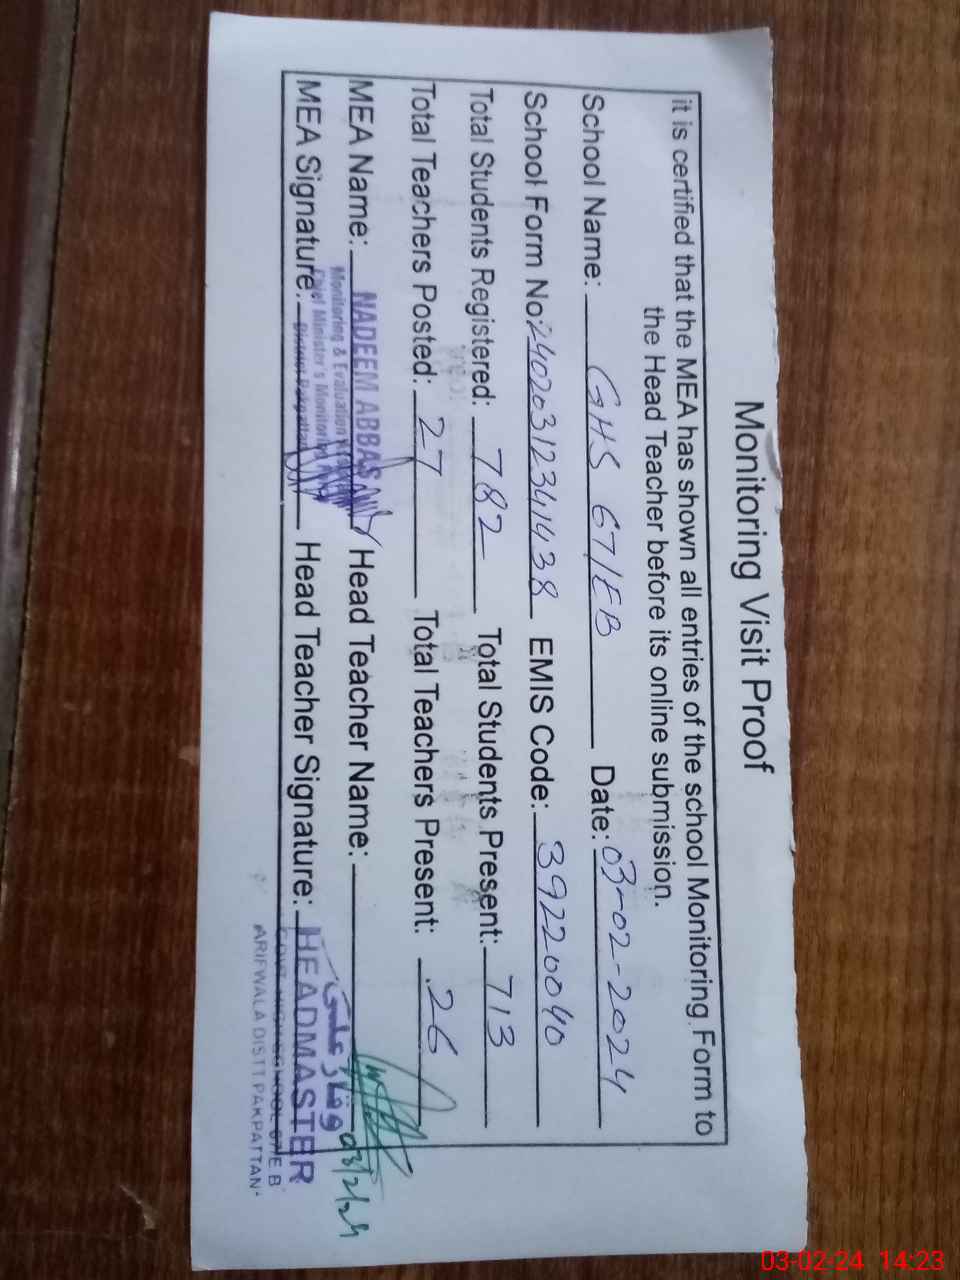 Monitoring Visit Proof
it is certified that the MEA has shown all entries of the school Monitoring Form to
the Head Teacher before its online submission.
School Name: GHS 67/EB Date: 03-02-2024
School Form No 24020312341438 EMIS Code: 39220040
Total Students Registered: 782 Total Students Present: 713
Total Teachers Posted: 27 Total Teachers Present: 26
MEA Name: NADEEM ABBAS Head Teacher Name:
Monitoring & Evaluation
Chief Minister's Monitoring
District Pakpattan
MEA Signature: Head Teacher Signature:
03/2/24
HEADMASTER
GOVT HIGH SCHOOL 67/E.B
ARIFWALA DISTT PAKPATTAN
03-02-24 14:23